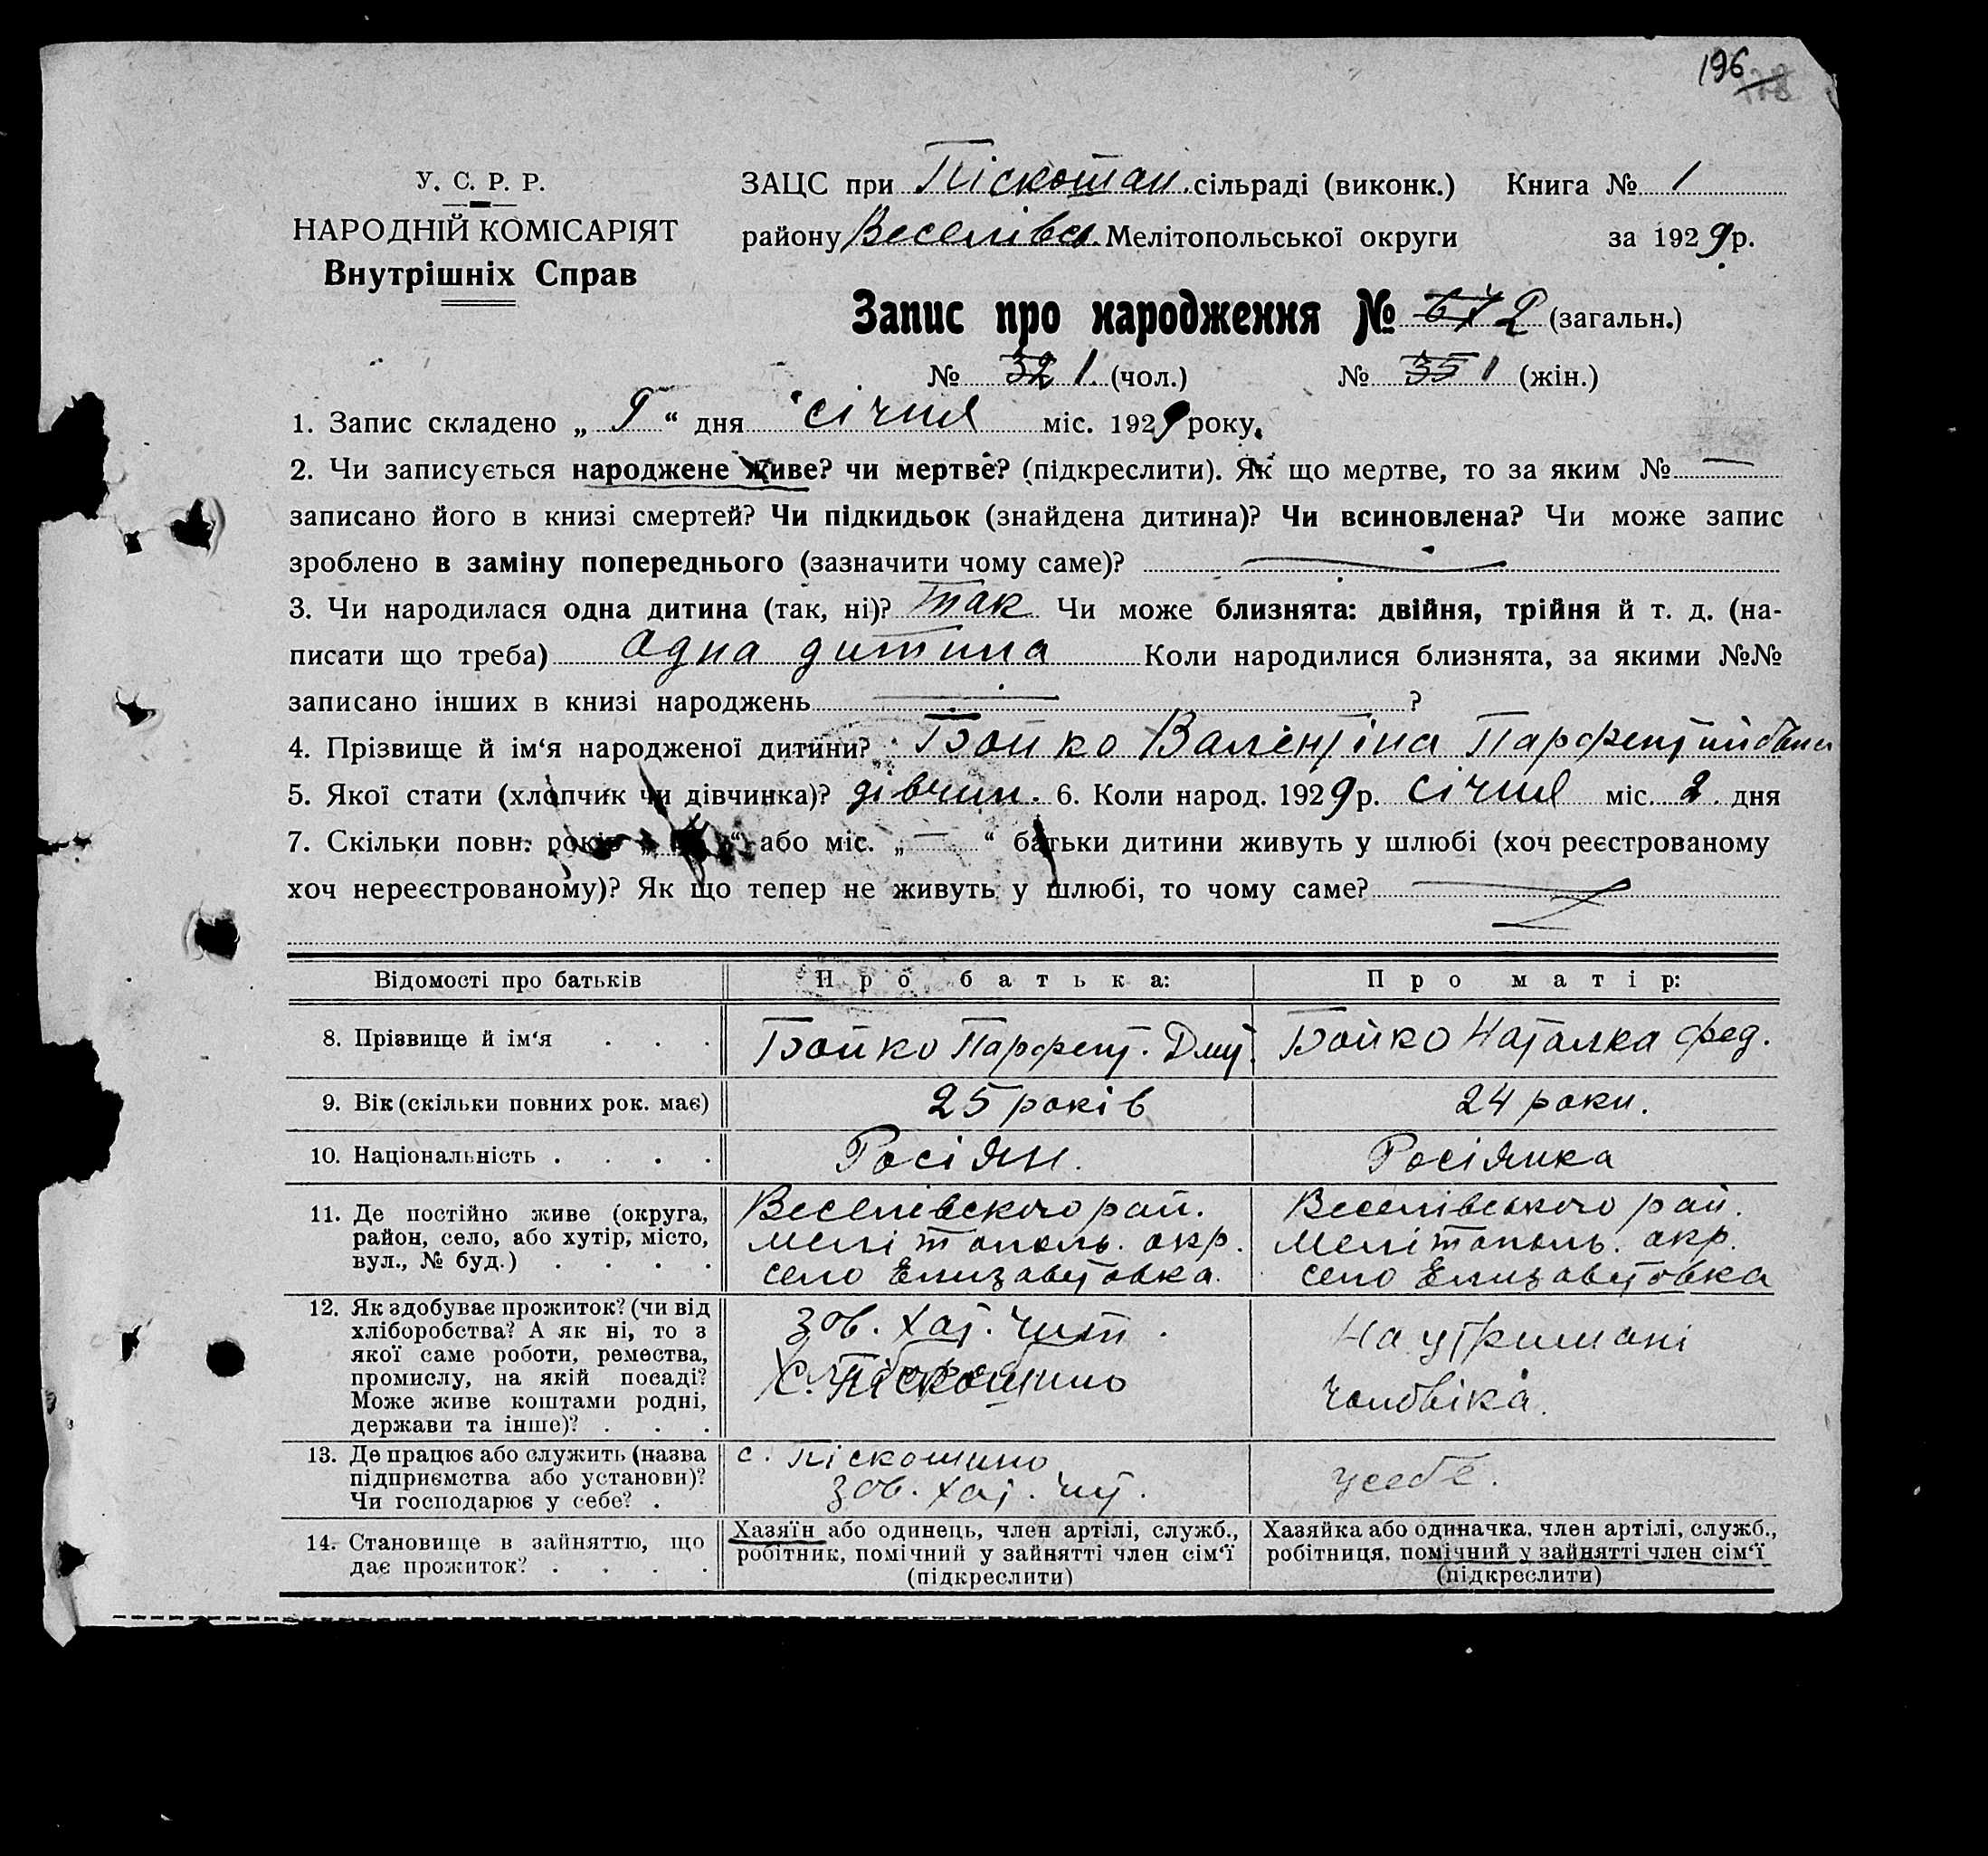 196
У. С. Р. Р.
НАРОДНІЙ КОМІСАРІЯТ
Внутрішніх Справ
ЗАЦС при Піскошан. сільраді (виконк.) Книга № 1
району Веселівсь. Мелітопольської округи за 1929 р.
Запис про народження № 2 (загальн.)
№ 32 1. (чол.) № 35 1 (жін.)
1. Запис складено „ “ дня січня міс. 1929 року.
2. Чи записується народжене живе? чи мертве? (підкреслити). Як що мертве, то за яким № —
записано його в книзі смертей? Чи підкидьок (знайдена дитина)? Чи всиновлена? Чи може запис
зроблено в заміну попереднього (зазначити чому саме)? —
3. Чи народилася одна дитина (так, ні)? так Чи може близнята: двійня, трійня й т. д. (на-
писати що треба) одна дитина Коли народилися близнята, за якими №№
записано інших в книзі народжень — ?
4. Прізвище й ім‘я народженої дитини? Бойко Валентіна
5. Якої стати (хлопчик чи дівчинка)? дівчин. 6. Коли народ. 1929 р. січня міс. 2. дня
7. Скільки повн. років „ “ або міс. „ — “ батьки дитини живуть у шлюбі (хоч реєстрованому
хоч нереєстрованому)? Як що тепер не живуть у шлюбі, то чому саме? —
Відомості про батьків Про батька: Про матір:
8. Прізвище й ім‘я . . . Бойко Парфент. Дми. Бойко Наталка Фед.
9. Вік (скільки повних рок. має) 25 років 24 роки.
10. Національність . . . . Росіян. Росіянка
11. Де постійно живе (округа, район, село, або хутір, місто, вул., № буд.) . . . .
Веселівского рай.
Мелітополь. окр.
село Елизаветовка.
Веселівського рай.
Мелітополь. окр.
село Елизаветовка
12. Як здобуває прожиток? (чи від хліборобства? А як ні, то з якої саме роботи, ремества, промислу, на якій посаді? Може живе коштами родні, держави та інше)? . . .
Зав. хат. чит.
с. Піскошино
На утримані
чоловіка.
13. Де працює або служить (назва підприємства або установи)? Чи господарює у себе? .
с. Піскошино
зав. хат. чит.
у себе.
14. Становище в зайняттю, що дає прожиток? . . . .
Хазяїн або одинець, член артілі, служб., робітник, помічний у зайнятті член сім‘ї (підкреслити)
Хазяйка або одиначка, член артілі, служб., робітниця, помічний у зайнятті член сім‘ї (підкреслити)